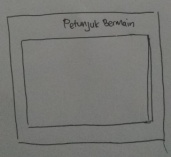 Petunjuk Bermain